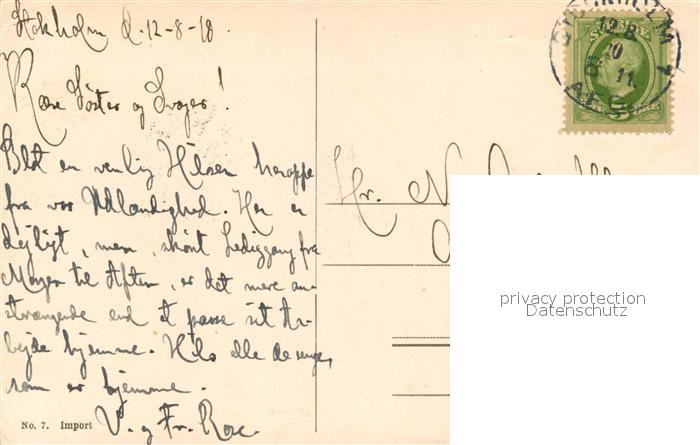 Stokholm d. 12-8-10.
Kære Søster og Svoger!
Blot en venlig Hilsen heroppe
fra vor Udlændighed. Her er
dejligt, men, skønt Lediggang fra
Morgen til Aften, er det mere an-
strængende end at passe sit Ar-
bejde hjemme. Hils alle de unge,
som er hjemme.
V. og Fr. Rose.
No. 7. Import
Hr. N.
STOCKHOLM 1
12 8
10
11
AFG.
SVERIGE
5
privacy protection
Datenschutz